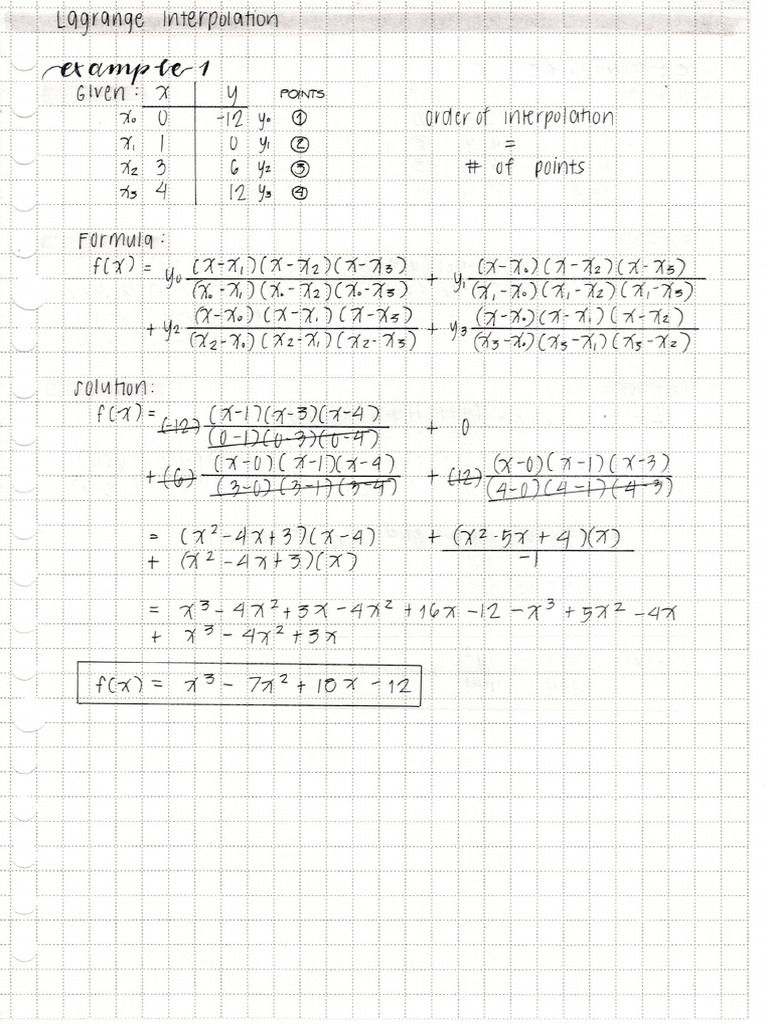 Lagrange Interpolation
example 1
Given: x y POINTS
x₀ 0 -12 y₀ ①
x₁ 1 0 y₁ ②
x₂ 3 6 y₂ ③
x₃ 4 12 y₃ ④
order of interpolation
=
# of points
Formula:
f(x) = y₀ (x-x₁)(x-x₂)(x-x₃) / (x₀-x₁)(x₀-x₂)(x₀-x₃) + y₁ (x-x₀)(x-x₂)(x-x₃) / (x₁-x₀)(x₁-x₂)(x₁-x₃)
+ y₂ (x-x₀)(x-x₁)(x-x₃) / (x₂-x₀)(x₂-x₁)(x₂-x₃) + y₃ (x-x₀)(x-x₁)(x-x₂) / (x₃-x₀)(x₃-x₁)(x₃-x₂)
solution:
f(x) = (-12) (x-1)(x-3)(x-4) / (0-1)(0-3)(0-4) + 0
+ (6) (x-0)(x-1)(x-4) / (3-0)(3-1)(3-4) + (12) (x-0)(x-1)(x-3) / (4-0)(4-1)(4-3)
= (x²-4x+3)(x-4) + (x²-5x+4)(x) / -1
+ (x²-4x+3)(x)
= x³-4x²+3x-4x²+16x-12-x³+5x²-4x
+ x³-4x²+3x
f(x) = x³-7x²+18x-12